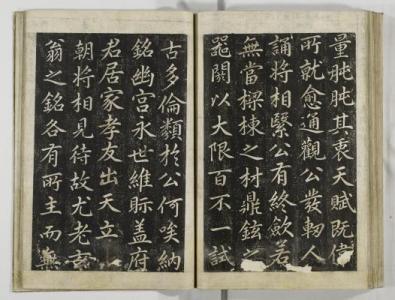 量肫肫其衷天賦既偉
所就愈通觀公發軔人
誦將相緊公有終歉若
無當樑棟之材鼎鉉
噐闕以大限百不一試
古多倫類於公何唉納
銘幽宮永世維眎盖府
君居家孝友出天立
朝將相見待故尤老
翁之銘各有所主而無